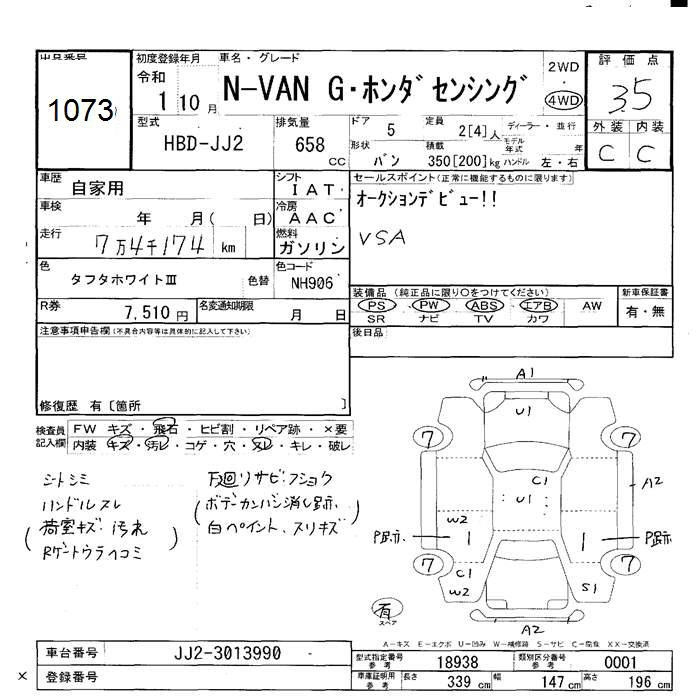 出品番号
1073
初度登録年月
令和
1 10 月
車名・グレード
N-VAN G・ホンダセンシング
2WD
・
4WD
評価点
3.5
外装 内装
C C
型式
HBD-JJ2
排気量
658
CC
ドア
5
定員
2[4]人
ディーラー・並行
形状
バン
積載
350[200]kg
モデル年式
年
ハンドル 左・右
車歴
自家用
シフト
IAT
車検
年 月( 日)
冷房
AAC
走行
7万4千174 km
燃料
ガソリン
色
タフタホワイトⅢ
色替
色コード
NH906
R券
7,510 円
名変通知期限
月 日
セールスポイント(正常に機能するものに限ります)
オークションデビュー!!
VSA
装備品(純正品に限り〇をつけてください)
PS PW ABS エアB AW
SR ナビ TV カワ
新車保証書
有・無
後日品
注意事項申告欄(不具合内容等は具体的に記入して下さい)
修復歴 有〔箇所 〕
検査員記入欄
FW キズ・飛石・ヒビ割・リペア跡・×要
内装 キズ・汚レ・コゲ・穴・スレ・キレ・破レ
シートシミ
ハンドルスレ
(荷室キズ・汚れ
Rゲートウラヘコミ)
下回リサビ・フショク
(ボデーカンバン消し跡、
白ペイント、スリキズ)
A1
U1
7
7
C1
U1
A2
W2
P跡、
P跡、
7
7
C1
W2
S1
有
スペア
A2
A－キズ E－エクボ U－凹み W－補修跡 S－サビ C－腐食 XX－交換済
車台番号
JJ2-3013990
× 登録番号
型式指定番号
参考
18938
類別区分番号
参考
0001
車庫証明用
参考
長さ
339 cm
幅
147 cm
高さ
196 cm